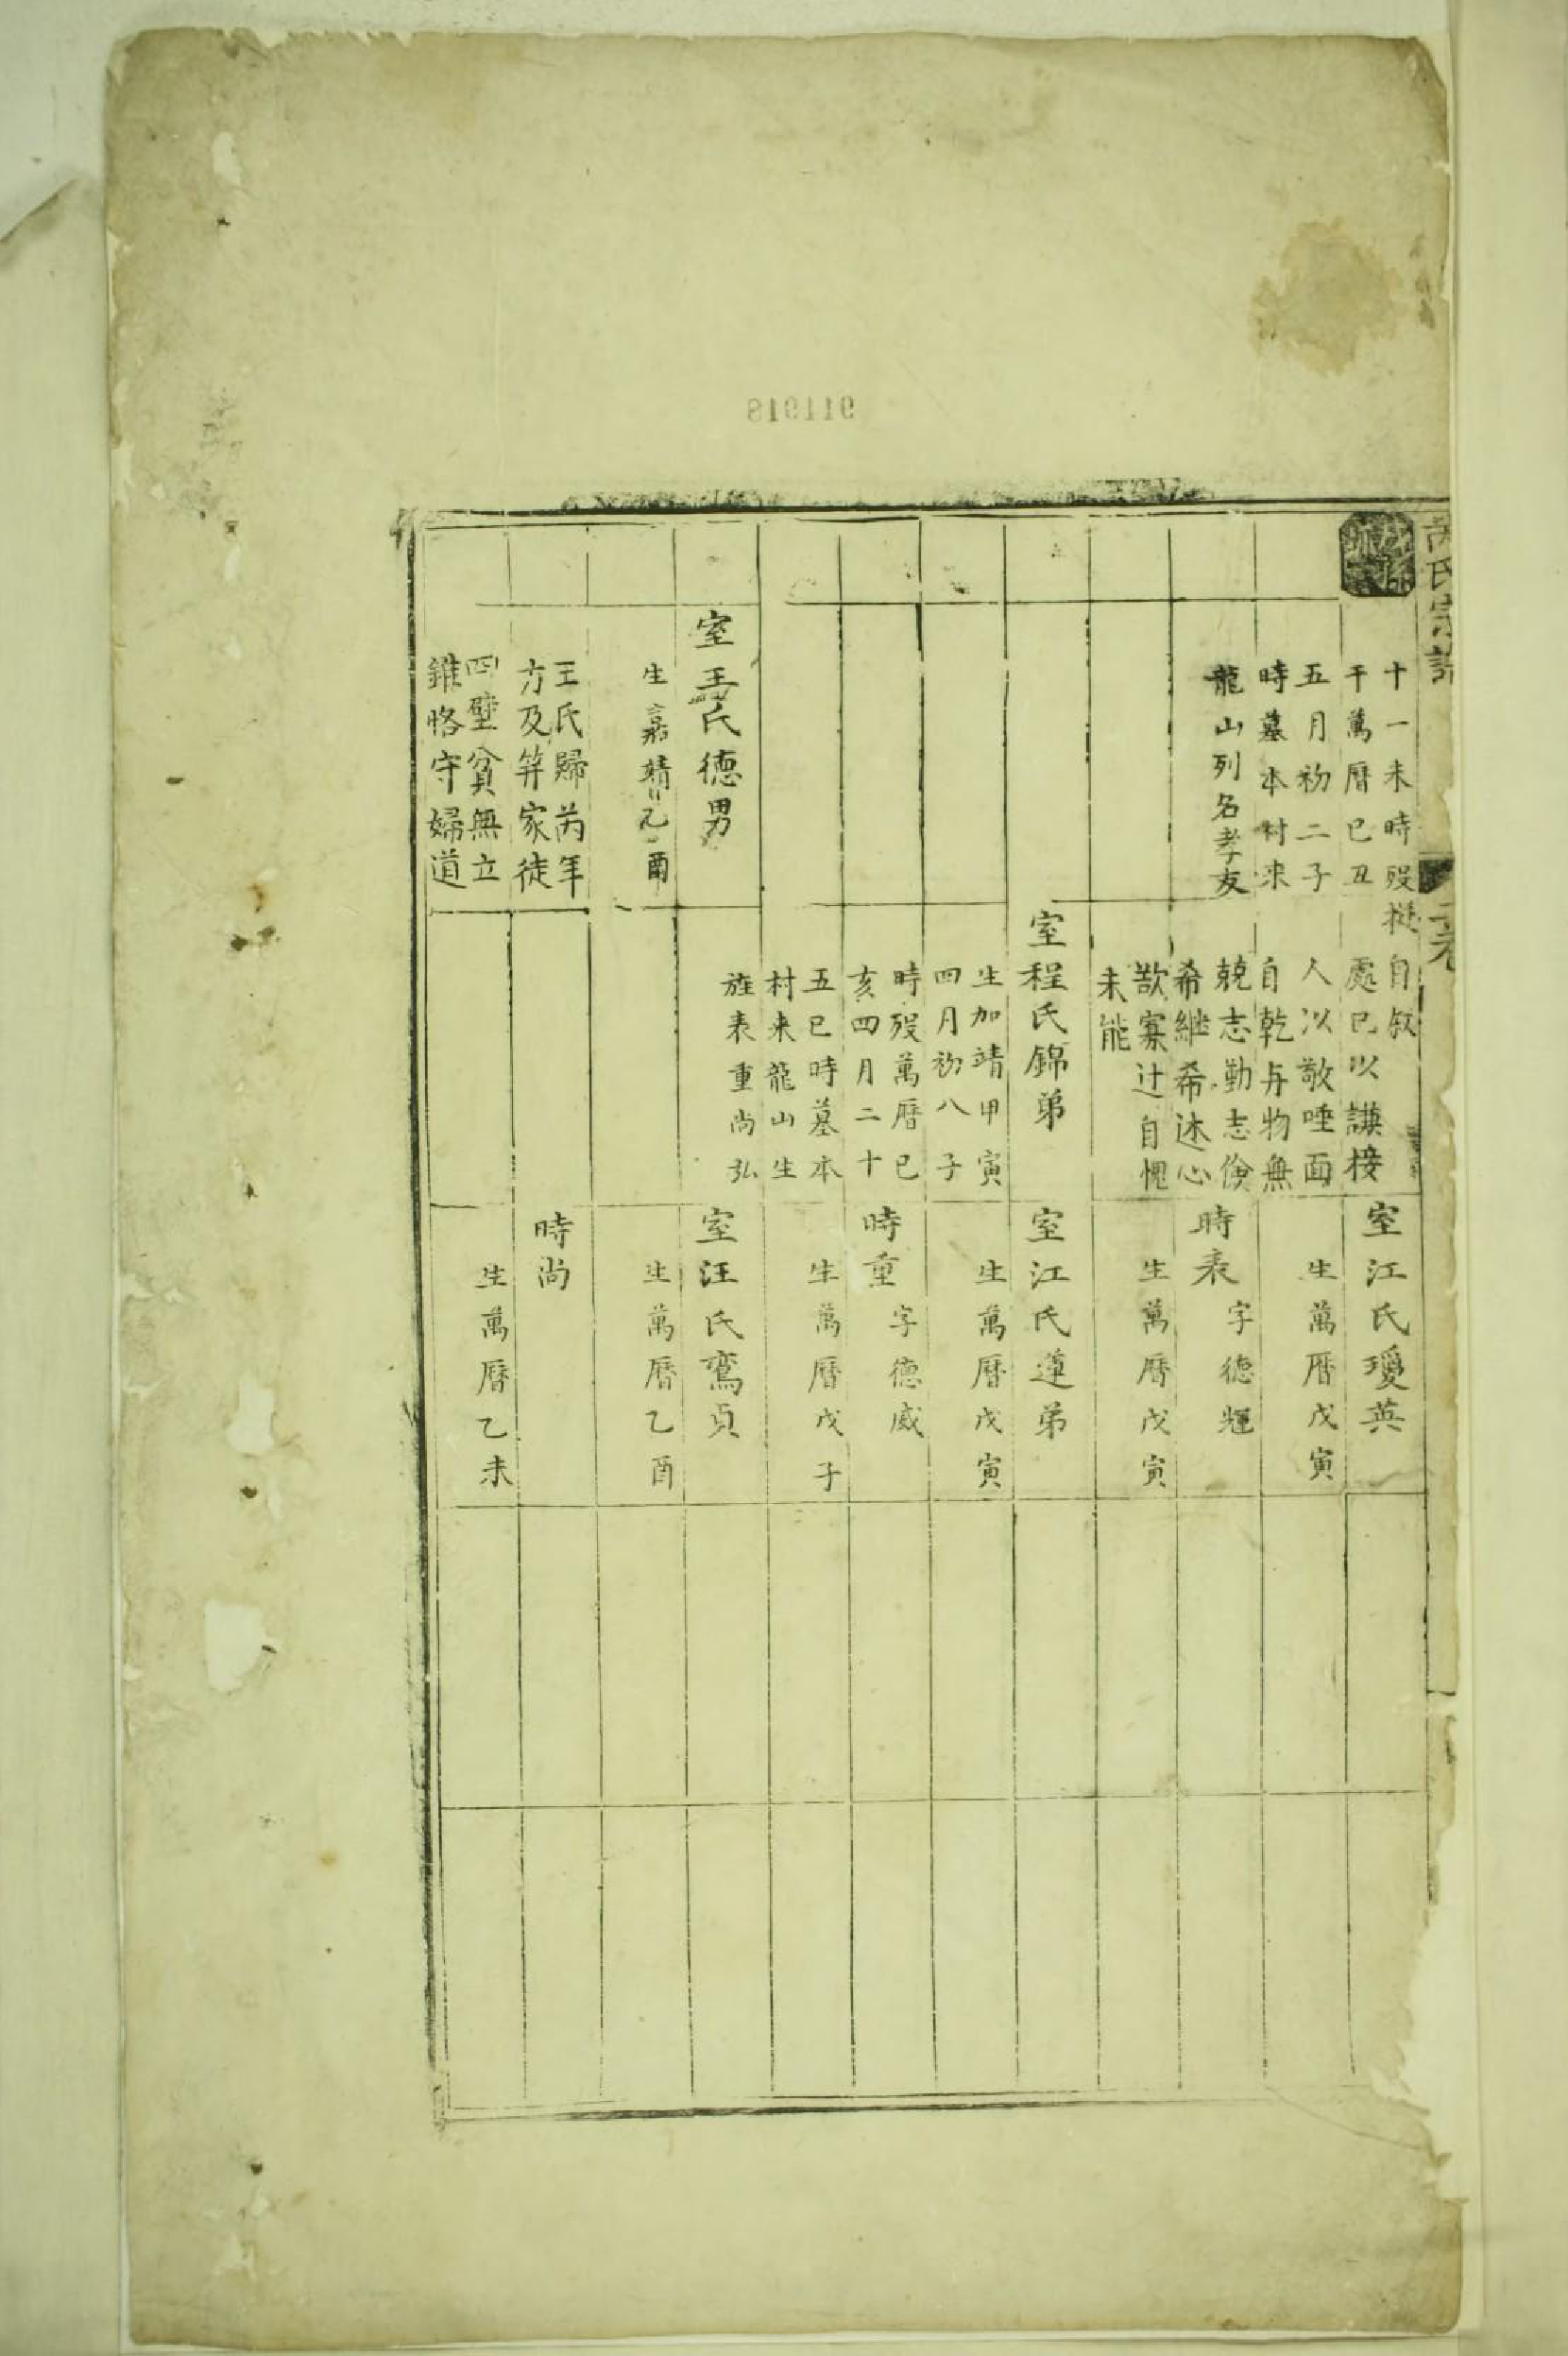 芮氏宗譜
十一未時殁
于萬曆己丑
五月初二子
時墓本村来
龍山列名孝友
挺
室王氏德男
生嘉靖元酉
王氏歸芮年
方及笄家徒
四壁貧無立
錐恪守婦道
自叙
處已以謙接
人以敬唾面
自乾与物無
兢志勤志儉
希継希述心
歉寡过自愧
未能
室程氏錦弟
生加靖甲寅
四月初八子
時殁萬曆已
亥四月二十
五巳時墓本
村来龍山生
旌表重尚弘
室江氏瓊英
生萬曆戊寅
時表字德輝
生萬曆戊寅
室江氏蓮弟
生萬曆戊寅
時重字德威
生萬曆戊子
室汪氏鸞貞
生萬曆乙酉
時尚
生萬曆乙未
911918